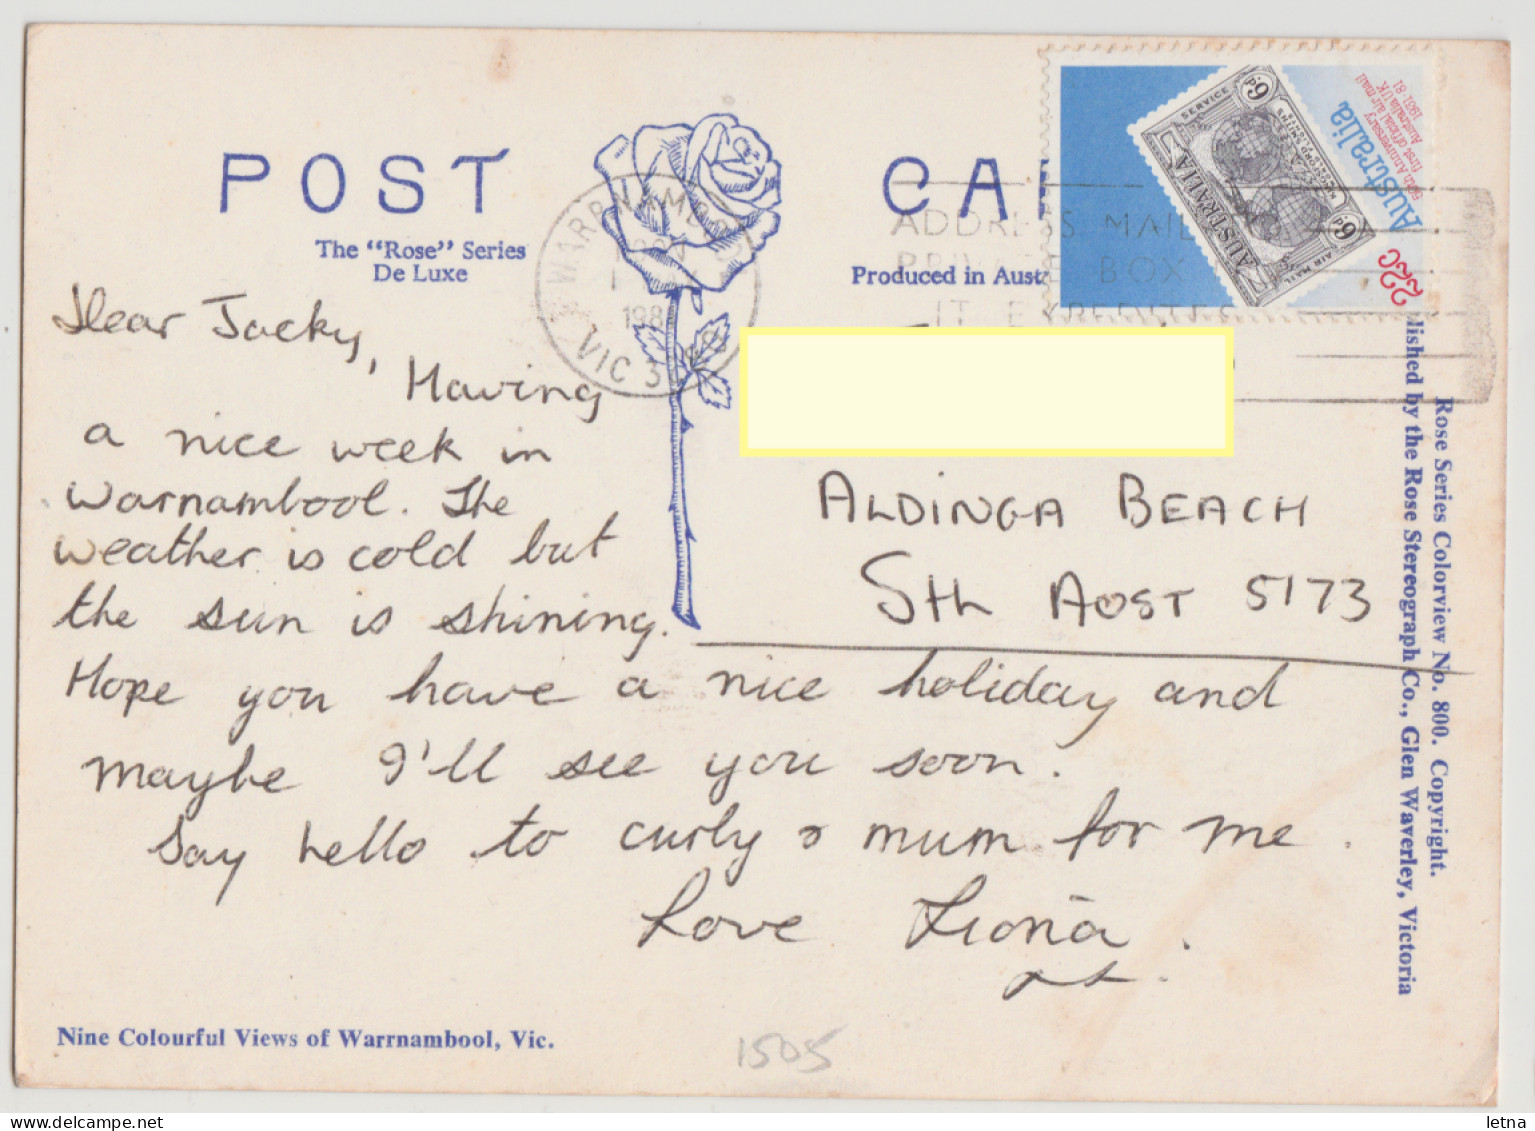 POST CA
The "Rose" Series
De Luxe
Produced in Aust
WARRNAMBOOL
198
VIC 3280
ADDRESS MAIL
PRIVATE BOX
IT EXPEDITES
60th Anniversary
first official air mail
Australia UK
1931-81
Australia
22c
AIR MAIL SERVICE
AUSTRALIA
6D. 6D.
Dear Jacky,
Having
a nice week in
Warnambool. The
weather is cold but
the sun is shining.
Hope you have a nice holiday and
maybe I'll see you soon.
Say hello to curly & mum for me.
Love Fiona.
ALDINGA BEACH
Sth AUST 5173
Nine Colourful Views of Warrnambool, Vic.
1505
Rose Series Colorview No. 800. Copyright.
lished by the Rose Stereograph Co., Glen Waverley, Victoria
letna